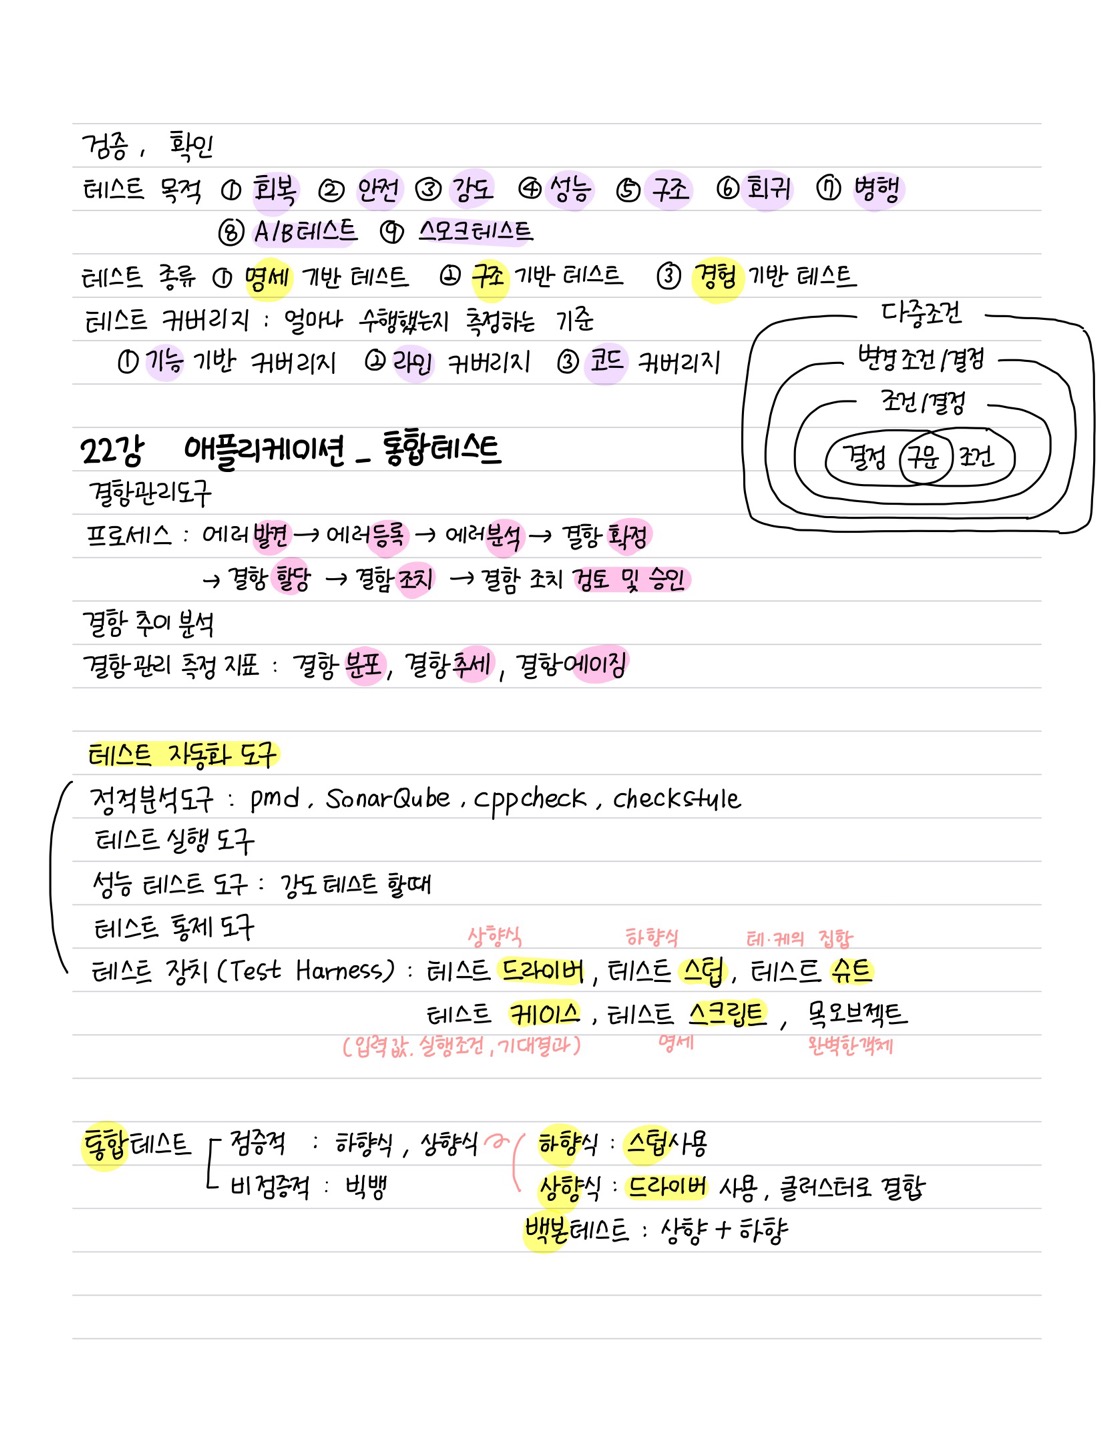 검증, 확인
테스트 목적 ① 회복 ② 안전 ③ 강도 ④ 성능 ⑤ 구조 ⑥ 회귀 ⑦ 병행
⑧ A/B테스트 ⑨ 스모크테스트
테스트 종류 ① 명세 기반 테스트 ② 구조 기반 테스트 ③ 경험 기반 테스트
테스트 커버리지 : 얼마나 수행했는지 측정하는 기준
① 기능 기반 커버리지 ② 라인 커버리지 ③ 코드 커버리지
다중조건
변경 조건/결정
조건/결정
결정 구문 조건
22강 애플리케이션_통합테스트
결함관리도구
프로세스 : 에러 발견 → 에러 등록 → 에러 분석 → 결함 확정
→ 결함 할당 → 결함 조치 → 결함 조치 검토 및 승인
결함 추이 분석
결함관리 측정 지표 : 결함 분포, 결함 추세, 결함 에이징
테스트 자동화 도구
정적분석도구 : pmd, SonarQube, cppcheck, checkstyle
테스트 실행 도구
성능 테스트 도구 : 강도 테스트 할때
테스트 통제 도구
상향식 하향식 테·케의 집합
테스트 장치(Test Harness) : 테스트 드라이버, 테스트 스텁, 테스트 슈트
테스트 케이스, 테스트 스크립트, 목오브젝트
(입력값, 실행조건, 기대결과) 명세 완벽한객체
통합테스트 점증적 : 하향식, 상향식 하향식 : 스텁사용
비점증적 : 빅뱅 상향식 : 드라이버 사용, 클러스터로 결합
백본테스트 : 상향 + 하향